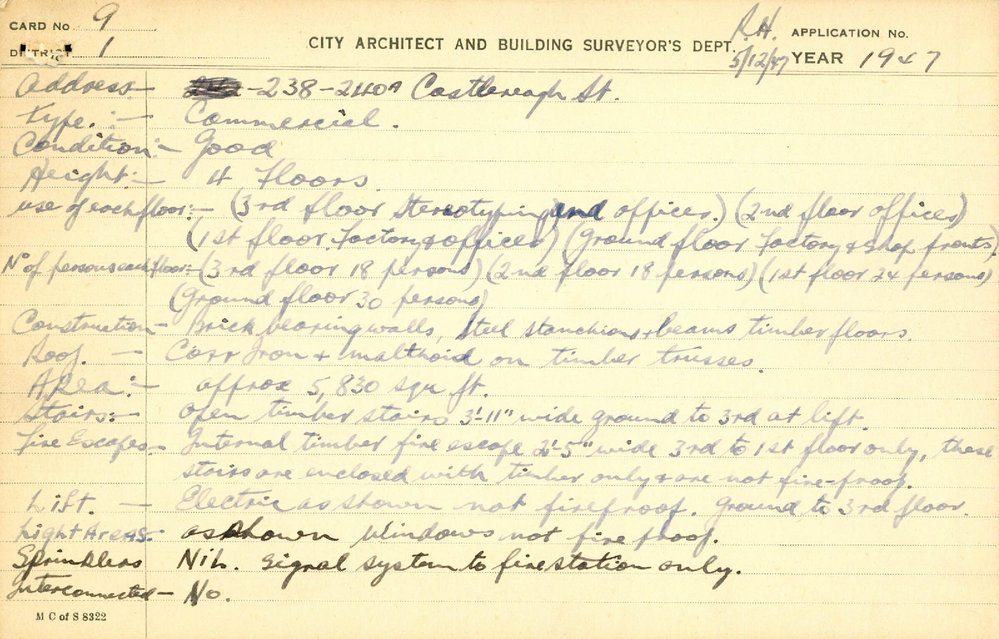 CARD No. 9
DISTRICT 1
CITY ARCHITECT AND BUILDING SURVEYOR'S DEPT.
R.H. 5/12/47
APPLICATION No.
YEAR 1947
Address:- -238-240A Castlereagh St.
Type. :- Commercial.
Condition:- Good
Height:- 4 Floors.
use of each floor:- (3rd floor Stereotyping and offices.) (2nd floor offices)
(1st floor Factory & offices) (Ground floor Factory & shop fronts)
No of persons each floor:- (3rd floor 18 persons) (2nd floor 18 persons) (1st floor 24 persons)
(Ground floor 30 persons)
Construction- Brick bearing walls, Steel stanchions & beams timber floors.
Roof. - Corr Iron & malthoid on timber trusses.
Area:- approx 5,830 squ ft.
Stairs:- open timber stairs 3'-11" wide ground to 3rd at lift.
Fire Escapes- Internal timber fire escape 2'-5" wide 3rd to 1st floor only, these
stairs are enclosed with timber only & are not fire-proof.
Lift. - Electric as shown not fireproof. Ground to 3rd floor.
Light Areas- as shown Windows not fire proof.
Sprinklers Nil. Signal system to fire station only.
Interconnected- No.
M C of S 8322